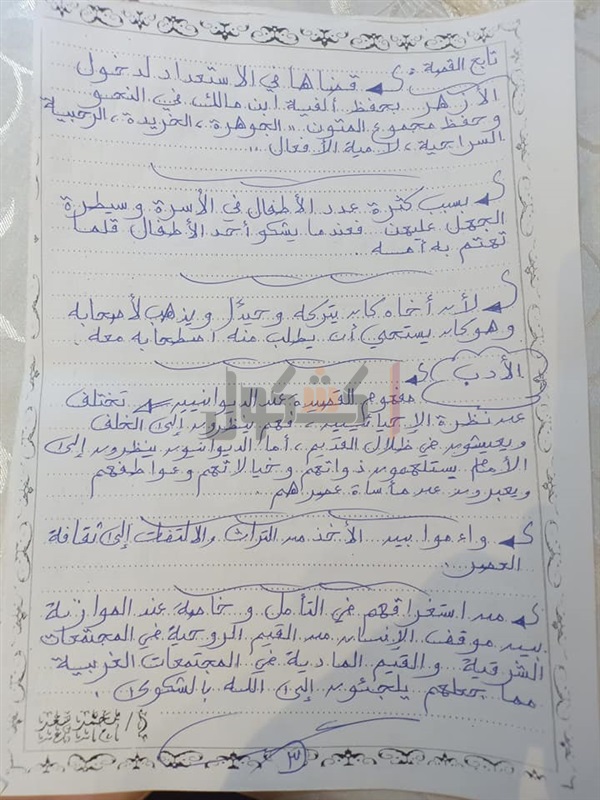 تابع القصة :
قضاها في الاستعداد لدخول
الأزهر بحفظ ألفية ابن مالك في النحو
وحفظ مجموع المتون " الجوهرة ، الخريدة ، الرحبية
السراجية ، لامية الأفعال "
بسبب كثرة عدد الأطفال في الأسرة وسيطرة
الجهل عليهن فعندما يشكو أحد الأطفال قلما
تهتم به أمه
لأن أخاه كان يتركه وحيدًا ويذهب لأصحابه
وهو كان يستحي أن يطلب منه اصطحابه معه
الأدب
مفهوم القصيدة عند الديوانيين تختلف
عن نظرة الإحيائيين ، فهم ينظرون إلى الخلف
ويعيشون في ظلال القديم ، أما الديوانيون ينظرون إلى
الأمام يستلهمون ذواتهم وخيالاتهم وعواطفهم
ويعبرون عن مأساة عصرهم
واءموا بين الأخذ من التراث والالتفات إلى ثقافة
العصر
من استغراقهم في التأمل وخاصة عند الموازنة
بين موقف الإنسان من القيم الروحية في المجتمعات
الشرقية والقيم المادية في المجتمعات الغربية
مما جعلهم يلجئون إلى الله بالشكوى
أ / محمد سعد
٣
كشكول